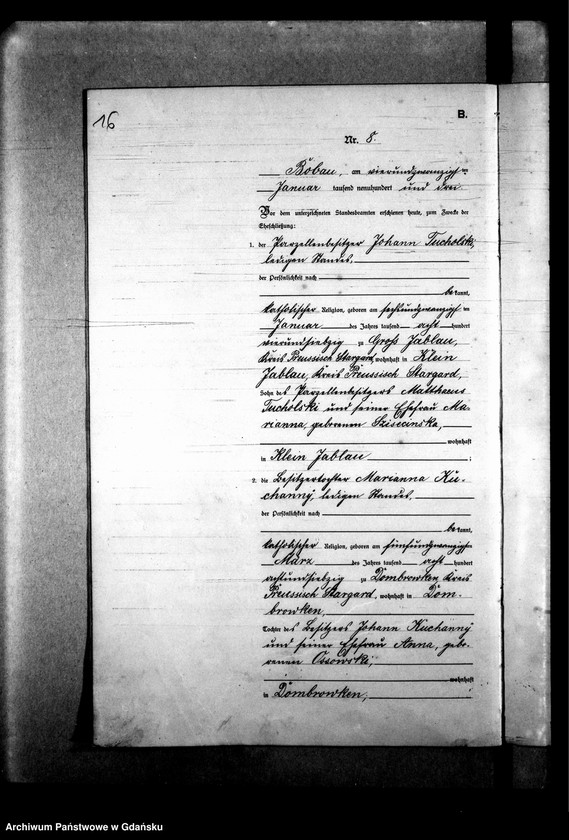 16
B.
Nr. 8.
Bobau, am vierundzwanzigsten
Januar tausend neunhundert und drei
Vor dem unterzeichneten Standesbeamten erschienen heute, zum Zwecke der
Eheschließung:
1. der Parzellenbesitzer Johann Tucholski,
ledigen Standes,
der Persönlichkeit nach
bekannt,
katholischer Religion, geboren am sechsundzwanzigsten
Januar des Jahres tausend acht hundert
vierundsiebzig zu Groß Jablau,
Kreis Preussisch Stargard, wohnhaft in Klein
Jablau, Kreis Preussisch Stargard,
Sohn des Parzellenbesitzers Matthaeus
Tucholski und seiner Ehefrau Ma-
rianna, geborenen
wohnhaft
in Klein Jablau ;
2. die Besitzertochter Marianna Ku-
channy, ledigen Standes,
der Persönlichkeit nach
bekannt,
katholischer Religion, geboren am fünfundzwanzigsten
März des Jahres tausend acht hundert
achtundsiebzig zu Dombrowken, Kreis
Preussisch Stargard, wohnhaft in Dom-
browken,
Tochter des Besitzers Johann Kuchanny
und seiner Ehefrau Anna, gebo-
renen Ossowski,
wohnhaft
in Dombrowken,
Archiwum Państwowe w Gdańsku